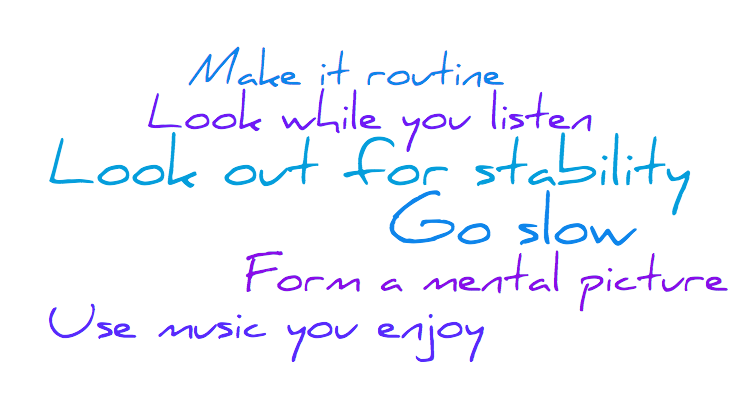 Make it routine
Look while you listen
Look out for stability
Go slow
Form a mental picture
Use music you enjoy